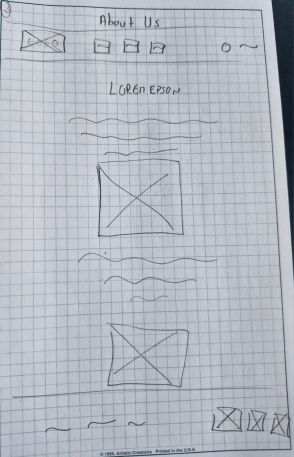 3
About Us
LOREN EPSON
© 1995. Artistic Creations. Printed in the U.S.A.